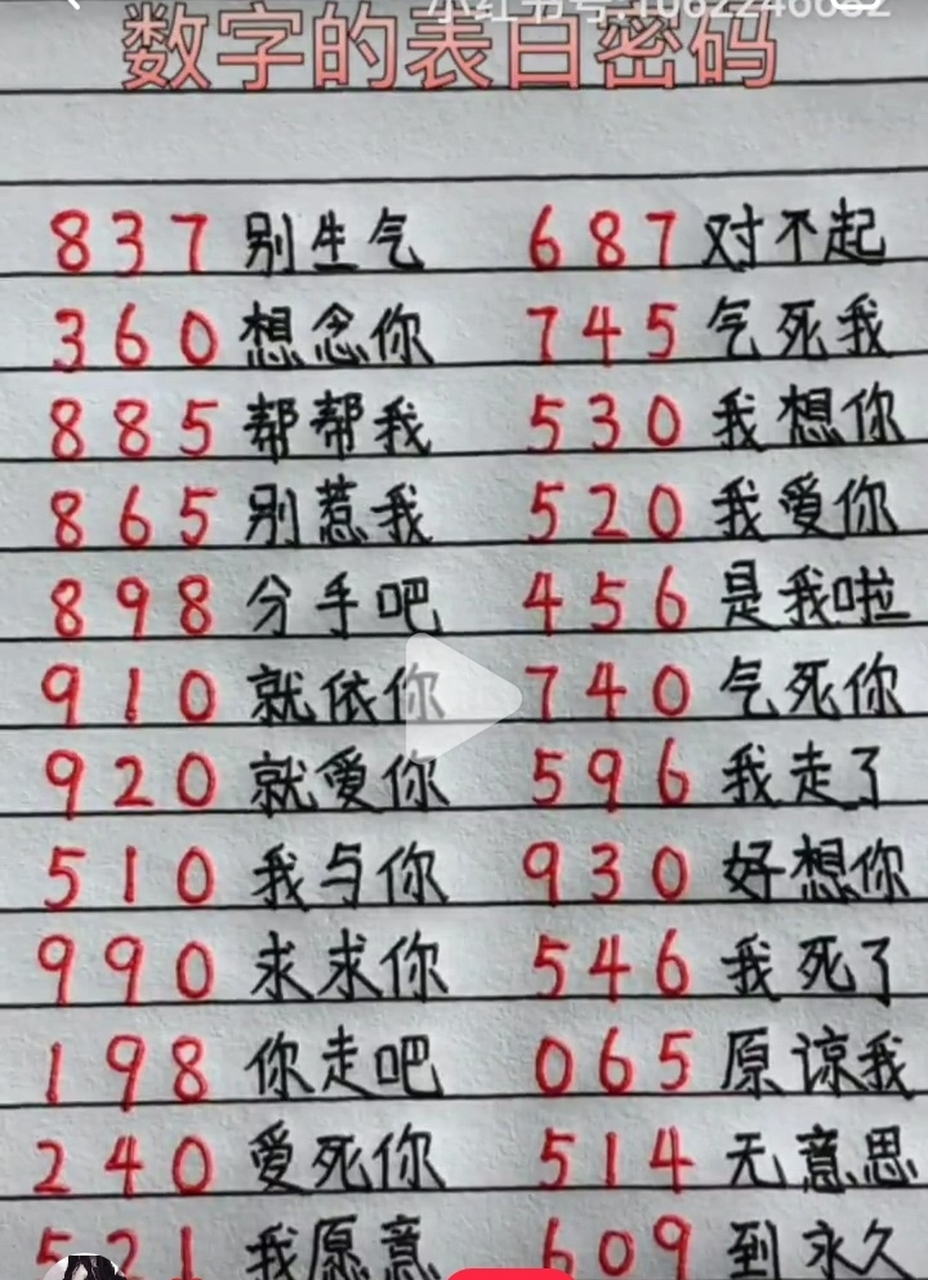 小红书号:1062246662
数字的表白密码
837 别生气 687 对不起
360 想念你 745 气死我
885 帮帮我 530 我想你
865 别惹我 520 我爱你
898 分手吧 456 是我啦
910 就依你 740 气死你
920 就爱你 596 我走了
510 我与你 930 好想你
990 求求你 546 我死了
198 你走吧 065 原谅我
240 爱死你 514 无意思
521 我愿意 609 到永久